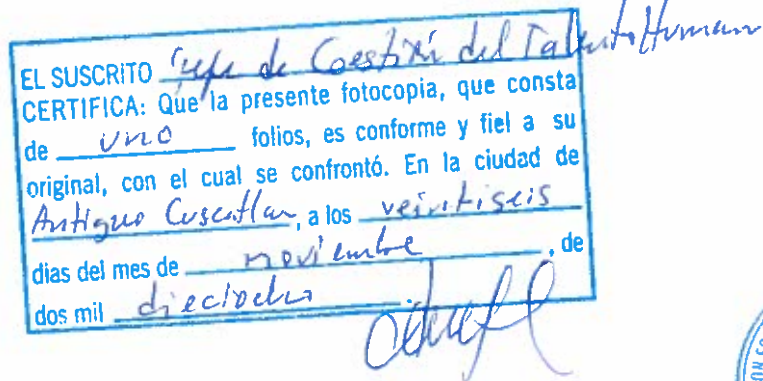 EL SUSCRITO Jefe de Gestión del Talento Humano
CERTIFICA: Que la presente fotocopia, que consta
de uno folios, es conforme y fiel a su
original, con el cual se confrontó. En la ciudad de
Antiguo Cuscatlan, a los veintiseis
dias del mes de noviembre, de
dos mil dieciocho.